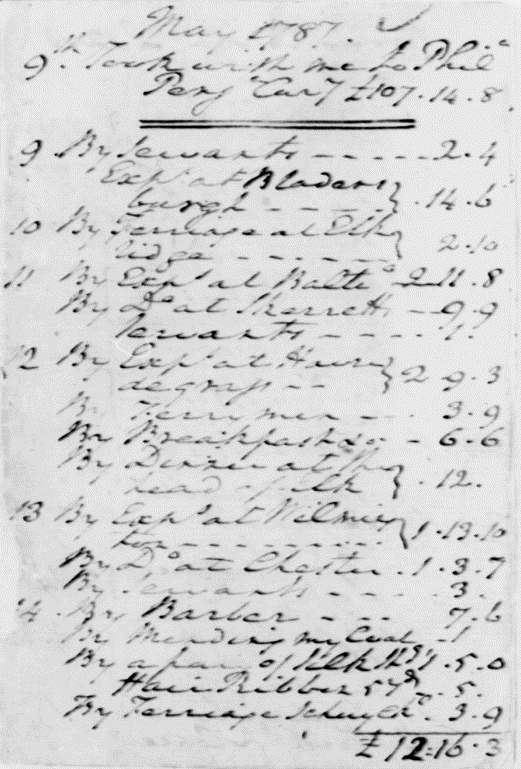 May 1787.
9th. Took with me to Phila
Pensa Cury £107.14.8.
9 By Servants - - - - - 2.4
Exps. at Bladens
burgh - - - - } .14.6
10 By Ferriage at Elk
ridge - - - - - - } 2.10
11 By Exps. at Balto. 2.11.8
By Do. at Skerretts - 9.9
Servants - - - - 1.
12 By Exps. at Havre
de grass - - } 2 9.3
By Ferrymen - - - 3.9
By Breakfast &c. - 6.6
By Dinner at the
head of elk } .12.
13 By Exps. at Wilming
ton - - - - - - - - - } 1.13.10
By Do. at Chester . 1.3.7
By Servants - - - - 3.
14 . By Barber - - - 7.6
By Mending my Coat - 1
By a pair of Silk 1.5.0
Hair Ribbon 5 yds. .5.
By Ferriage Schuyl. 3.9
£12=16.3